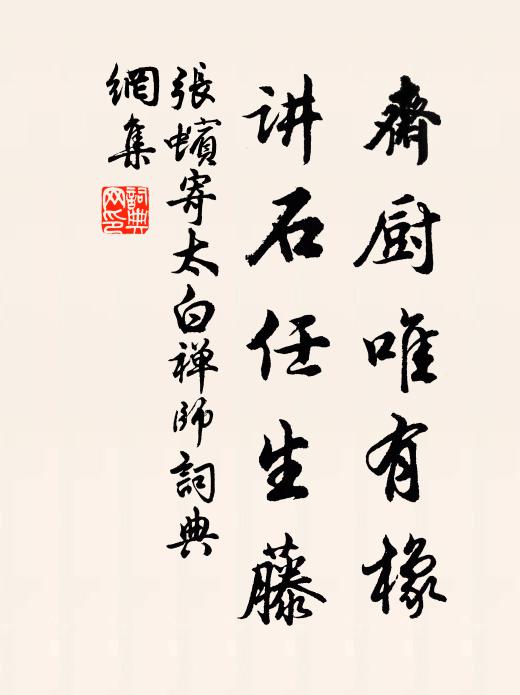 齋厨唯有橡
讲石任生藤
張蠙寄太白禅师詞典
網集
詞典
网印